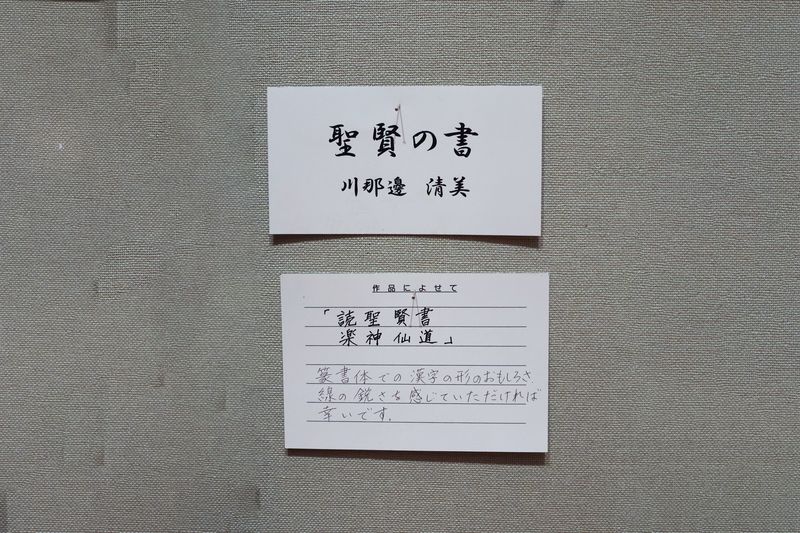 聖賢の書
川那邊 清美
作品によせて
「読聖賢書
楽神仙道」
篆書体での漢字の形のおもしろさ
線の鋭さを感じていただければ
幸いです.